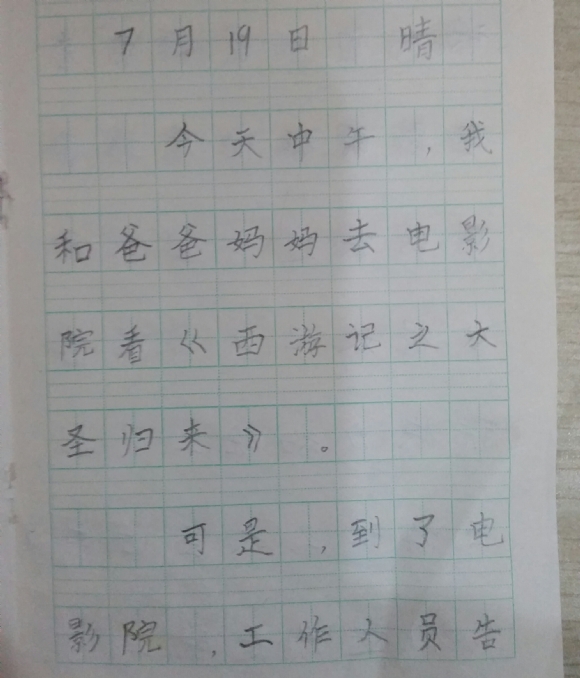 7月19日 晴
今天中午,我
和爸爸妈妈去电影
院看《西游记之大
圣归来》。
可是,到了电
影院,工作人员告